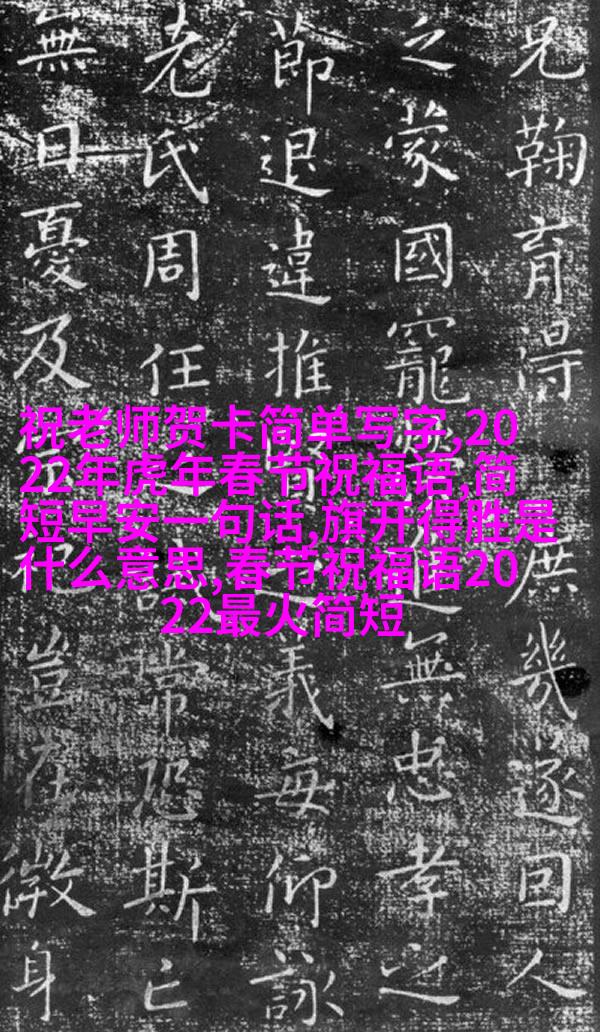 兄鞠育得庶幾遂回人
之蒙國寵無忠孝之
節退違推義每仰詠
老氏周任常恐斯亡
無日憂及豈在微身
祝老师贺卡简单写字,20
22年虎年春节祝福语,简
短早安一句话,旗开得胜是
什么意思,春节祝福语20
22最火简短